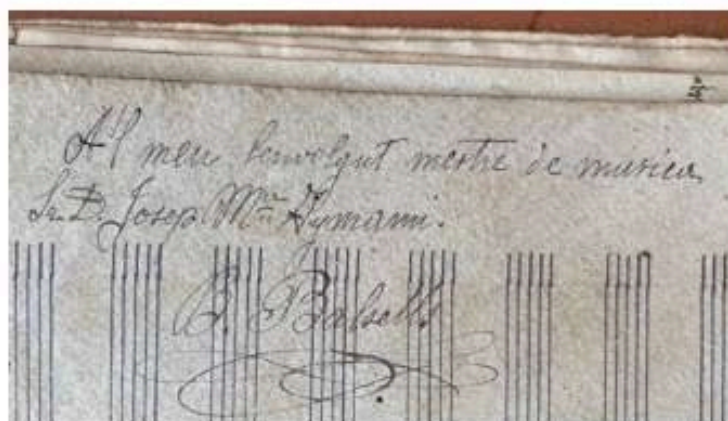 A'l meu benvolgut mestre de musica
Sr. D. Josep Mª Aymami.
B. Balsells